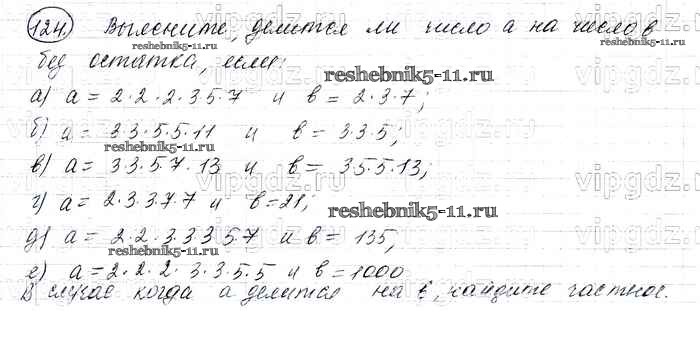 124. Выясните, делится ли число а на число в
без остатка, если:
а) а = 2·2·2·3·5·7 и в = 2·3·7;
б) а = 3·3·5·5·11 и в = 3·3·5;
в) а = 3·3·5·7·13 и в = 3·5·5·13;
г) а = 2·3·3·7·7 и в = 21;
д) а = 2·2·3·3·3·5·7 и в = 135,
е) а = 2·2·2·3·3·5·5 и в = 1000
В случае когда а делится на в, найдите частное.
reshebnik5-11.ru
reshebnik5-11.ru
reshebnik5-11.ru
reshebnik5-11.ru
vipgdz.ru
vipgdz.ru
vipgdz.ru
vipgdz.ru
vipgdz.ru
vipgdz.ru
vipgdz.ru
vipgdz.ru